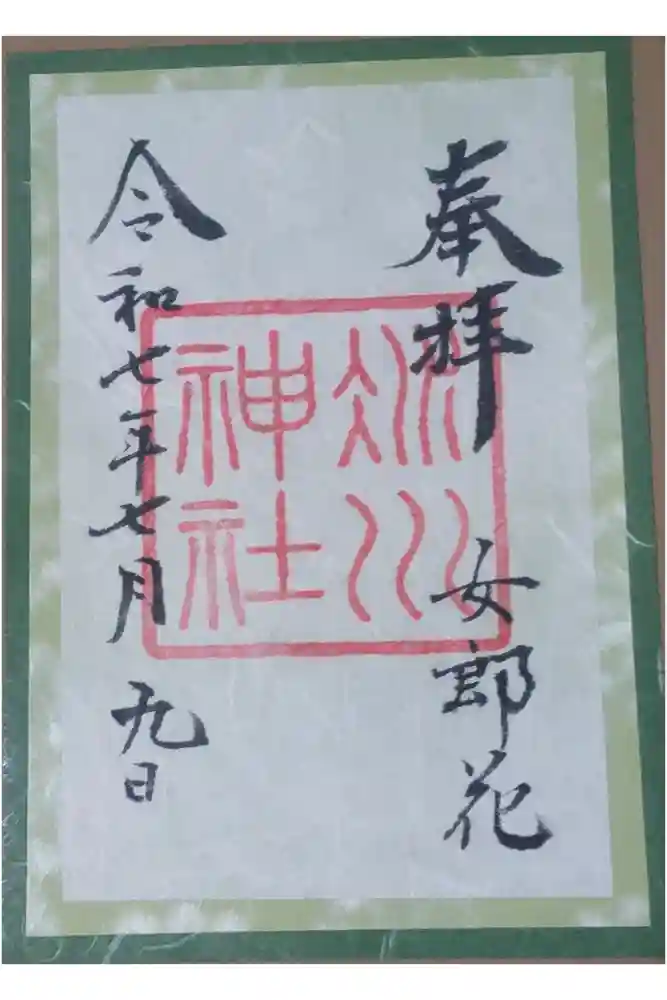 奉拝 女郎花
氷川
神社
令和七年七月九日